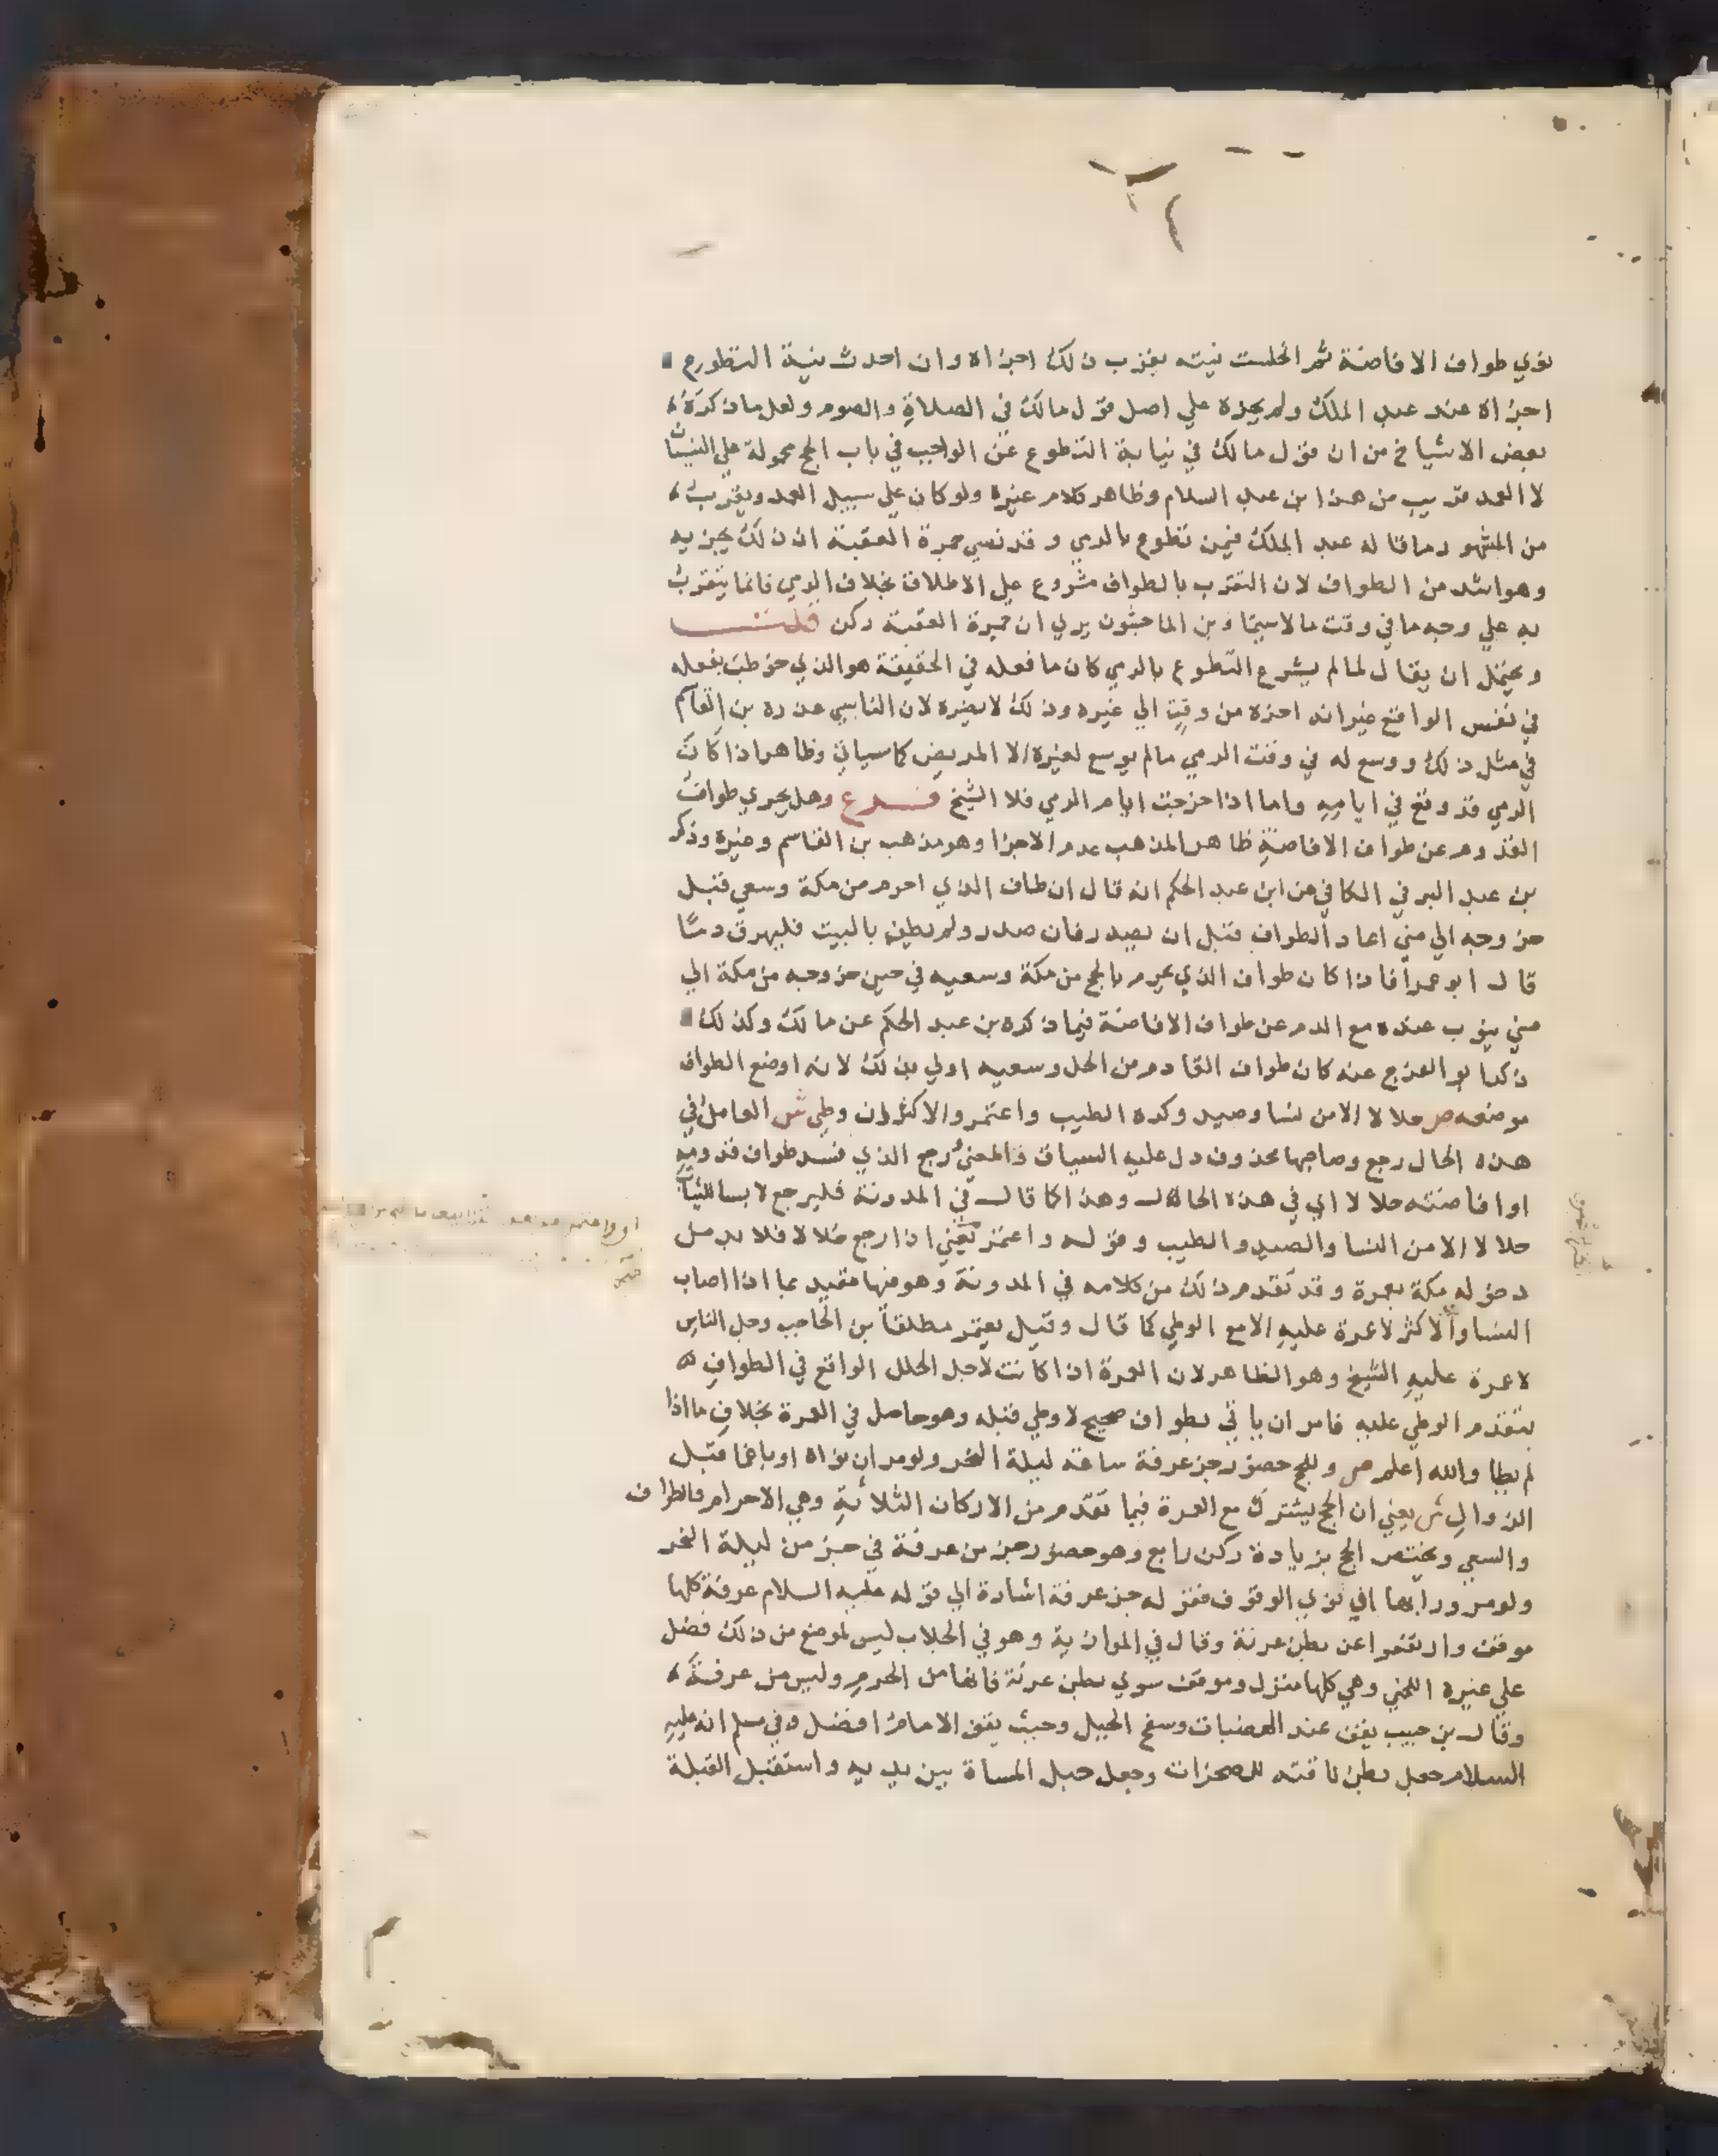 نوي طواف الافاضة ثم انحلت نيته بقرب ذلك اجزاه وان احدث نية التطوع
اجزاه عند عبد الملك ولم يجزه علي اصل قول مالك في الصلاة والصوم ولعل ما ذكره
بعض الاشياخ من ان قول مالك في نيابة التطوع عن الواجب في باب الحج محمولة علي النسيان
لا العمد قريب من هذا ابن عبد السلام وظاهر كلام غيره ولو كان علي سبيل العمد ويقرب
من المشهور ما قاله عبد الملك فيمن تطوع بالرمي وقد نسي جمرة العقبة ان ذلك يجزيه
وهو اشد من الطواف لان التقرب بالطواف مشروع علي الاطلاق بخلاف الرمي فانما يتقرب
به علي وجه ما في وقت ما لا سيما وبن الماجشون يري ان جمرة العقبة ركن قلت
ويحتمل ان يقال لما لم يشرع التطوع بالرمي كان ما فعله في الحقيقة هو الذي خوطب بفعله
في نفس الواقع غير انه اخره من وقت الي غيره وذلك لا يضره لان الناسي عذره بن القاسم
في مثل ذلك ووسع له في وقت الرمي ما لم يوسع لغيره الا المريض كما سياتي وظاهر اذا كان
الرمي قد وقع في ايامه واما اذا خرجت ايام الرمي فلا الشيخ فرع وهل يجزي طواف
القدوم عن طواف الافاضة ظاهر المذهب عدم الاجزا وهو مذهب بن القاسم وغيره وذكر
بن عبد البر في الكافي عن ابن عبد الحكم انه قال ان طاف الذي احرم من مكة وسعي قبل
خروجه الي مني اعاد الطواف قبل ان يصدر فان صدر ولم يطف بالبيت فليهرق دما
قال ابو عمر فاذا كان طواف الذي يحرم بالحج من مكة وسعيه في حين خروجه من مكة الي
مني ينوب عنده مع الدم عن طواف الافاضة فيما ذكره بن عبد الحكم عن مالك وكذلك
ذكر ابو الفرج عنه كان طواف القادم من الحل وسعيه اولي بذلك لانه اوضع الطواف
موضعه ص حلالا الا من نسا وصيد وكره الطيب واعتمر والاكثر ان وطي ش العامل في
هذه الحال رجع وصاحبها محذوف دل عليه السياق والمعني رجع الذي فسد طواف قدومه
او افاضته حلالا اي في هذه الحالة وهذا كما قال في المدونة فليرجع لابسا للثياب
حلالا الا من النسا والصيد والطيب وقوله واعتمر يعني اذا رجع حلالا فلا بد من
دخوله مكة بعمرة وقد تقدم ذلك من كلامه في المدونة وهو منها مقيد بما اذا اصاب
النسا والاكثر لا عمرة عليه الا مع الوطي كما قال وقيل يعتمر مطلقا بن الحاجب وجل الناس
لا عمرة عليه الشيخ وهو الظاهر لان العمرة اذا كانت لاجل الخلل الواقع في الطواف
بتقدم الوطي عليه فامر ان ياتي بطواف صحيح لا وطي قبله وهو حاصل في العمرة بخلاف ما اذا
لم يطا والله اعلم ص وللحج حضور جز عرفة ساعة ليلة النحر ولو مر ان نواه او باغما قبل
الزوال ش يعني ان الحج يشترك مع العمرة فيما تقدم من الاركان الثلاثة وهي الاحرام والطواف
والسعي ويختص الحج بزيادة ركن رابع وهو حضور جز من عرفة في جز من ليلة النحر
ولو مرورا بها اي نوي الوقوف فقوله جز عرفة اشارة الي قوله عليه السلام عرفة كلها
موقف وارتفعوا عن بطن عرنة وقال في الموازية وهو في الجلاب ليس لموضع من ذلك فضل
علي غيره اللخمي وهي كلها منزل وموقف سوي بطن عرنة فانها من الحرم وليس من عرفة
وقال بن حبيب يقف عند الهضبات وسفح الجبل وحيث يقف الامام افضل وفي مسلم انه عليه
السلام جعل بطن ناقته للصخرات وجعل حبل المشاة بين يديه واستقبل القبلة